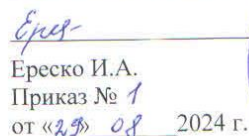 Ереско И.А.
Приказ № 1
от «29» 08 2024 г.